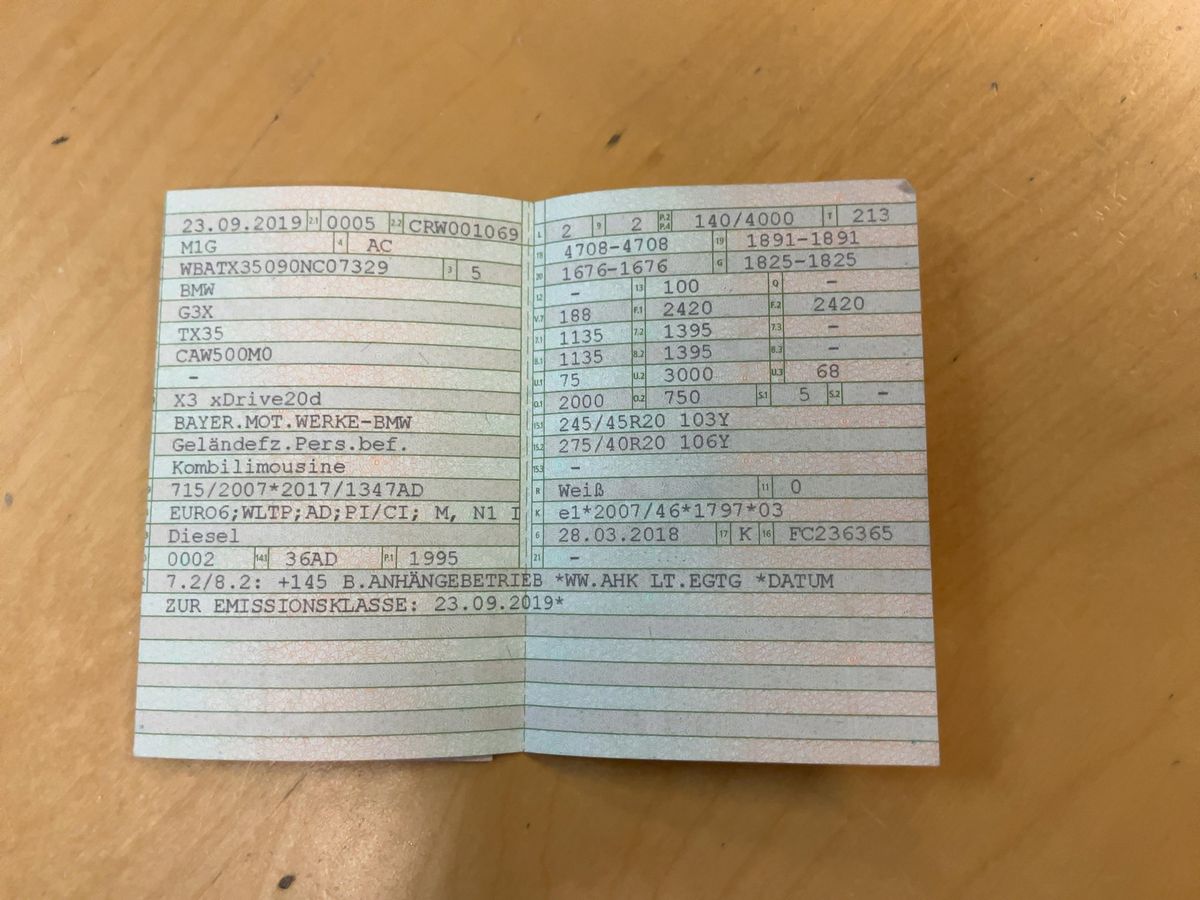 23.09.2019 2.1 0005 2.2 CRW001069
M1G 4 AC
WBATX35090NC07329 3 5
BMW
G3X
TX35
CAW500M0
–
X3 xDrive20d
BAYER.MOT.WERKE-BMW
Geländefz.Pers.bef.
Kombilimousine
715/2007*2017/1347AD
EURO6;WLTP;AD;PI/CI; M, N1 I
Diesel
0002 14.1 36AD P.1 1995
L 2 9 2 P.2 P.4 140/4000 T 213
18 4708-4708 19 1891-1891
20 1676-1676 G 1825-1825
12 – 13 100 Q –
V.7 188 F.1 2420 F.2 2420
7.1 1135 7.2 1395 7.3 –
8.1 1135 8.2 1395 8.3 –
U.1 75 U.2 3000 U.3 68
O.1 2000 O.2 750 S.1 5 S.2 –
15.1 245/45R20 103Y
15.2 275/40R20 106Y
15.3 –
R Weiß 11 0
K e1*2007/46*1797*03
6 28.03.2018 17 K 16 FC236365
21 –
7.2/8.2: +145 B.ANHÄNGEBETRIEB *WW.AHK LT.EGTG *DATUM
ZUR EMISSIONSKLASSE: 23.09.2019*